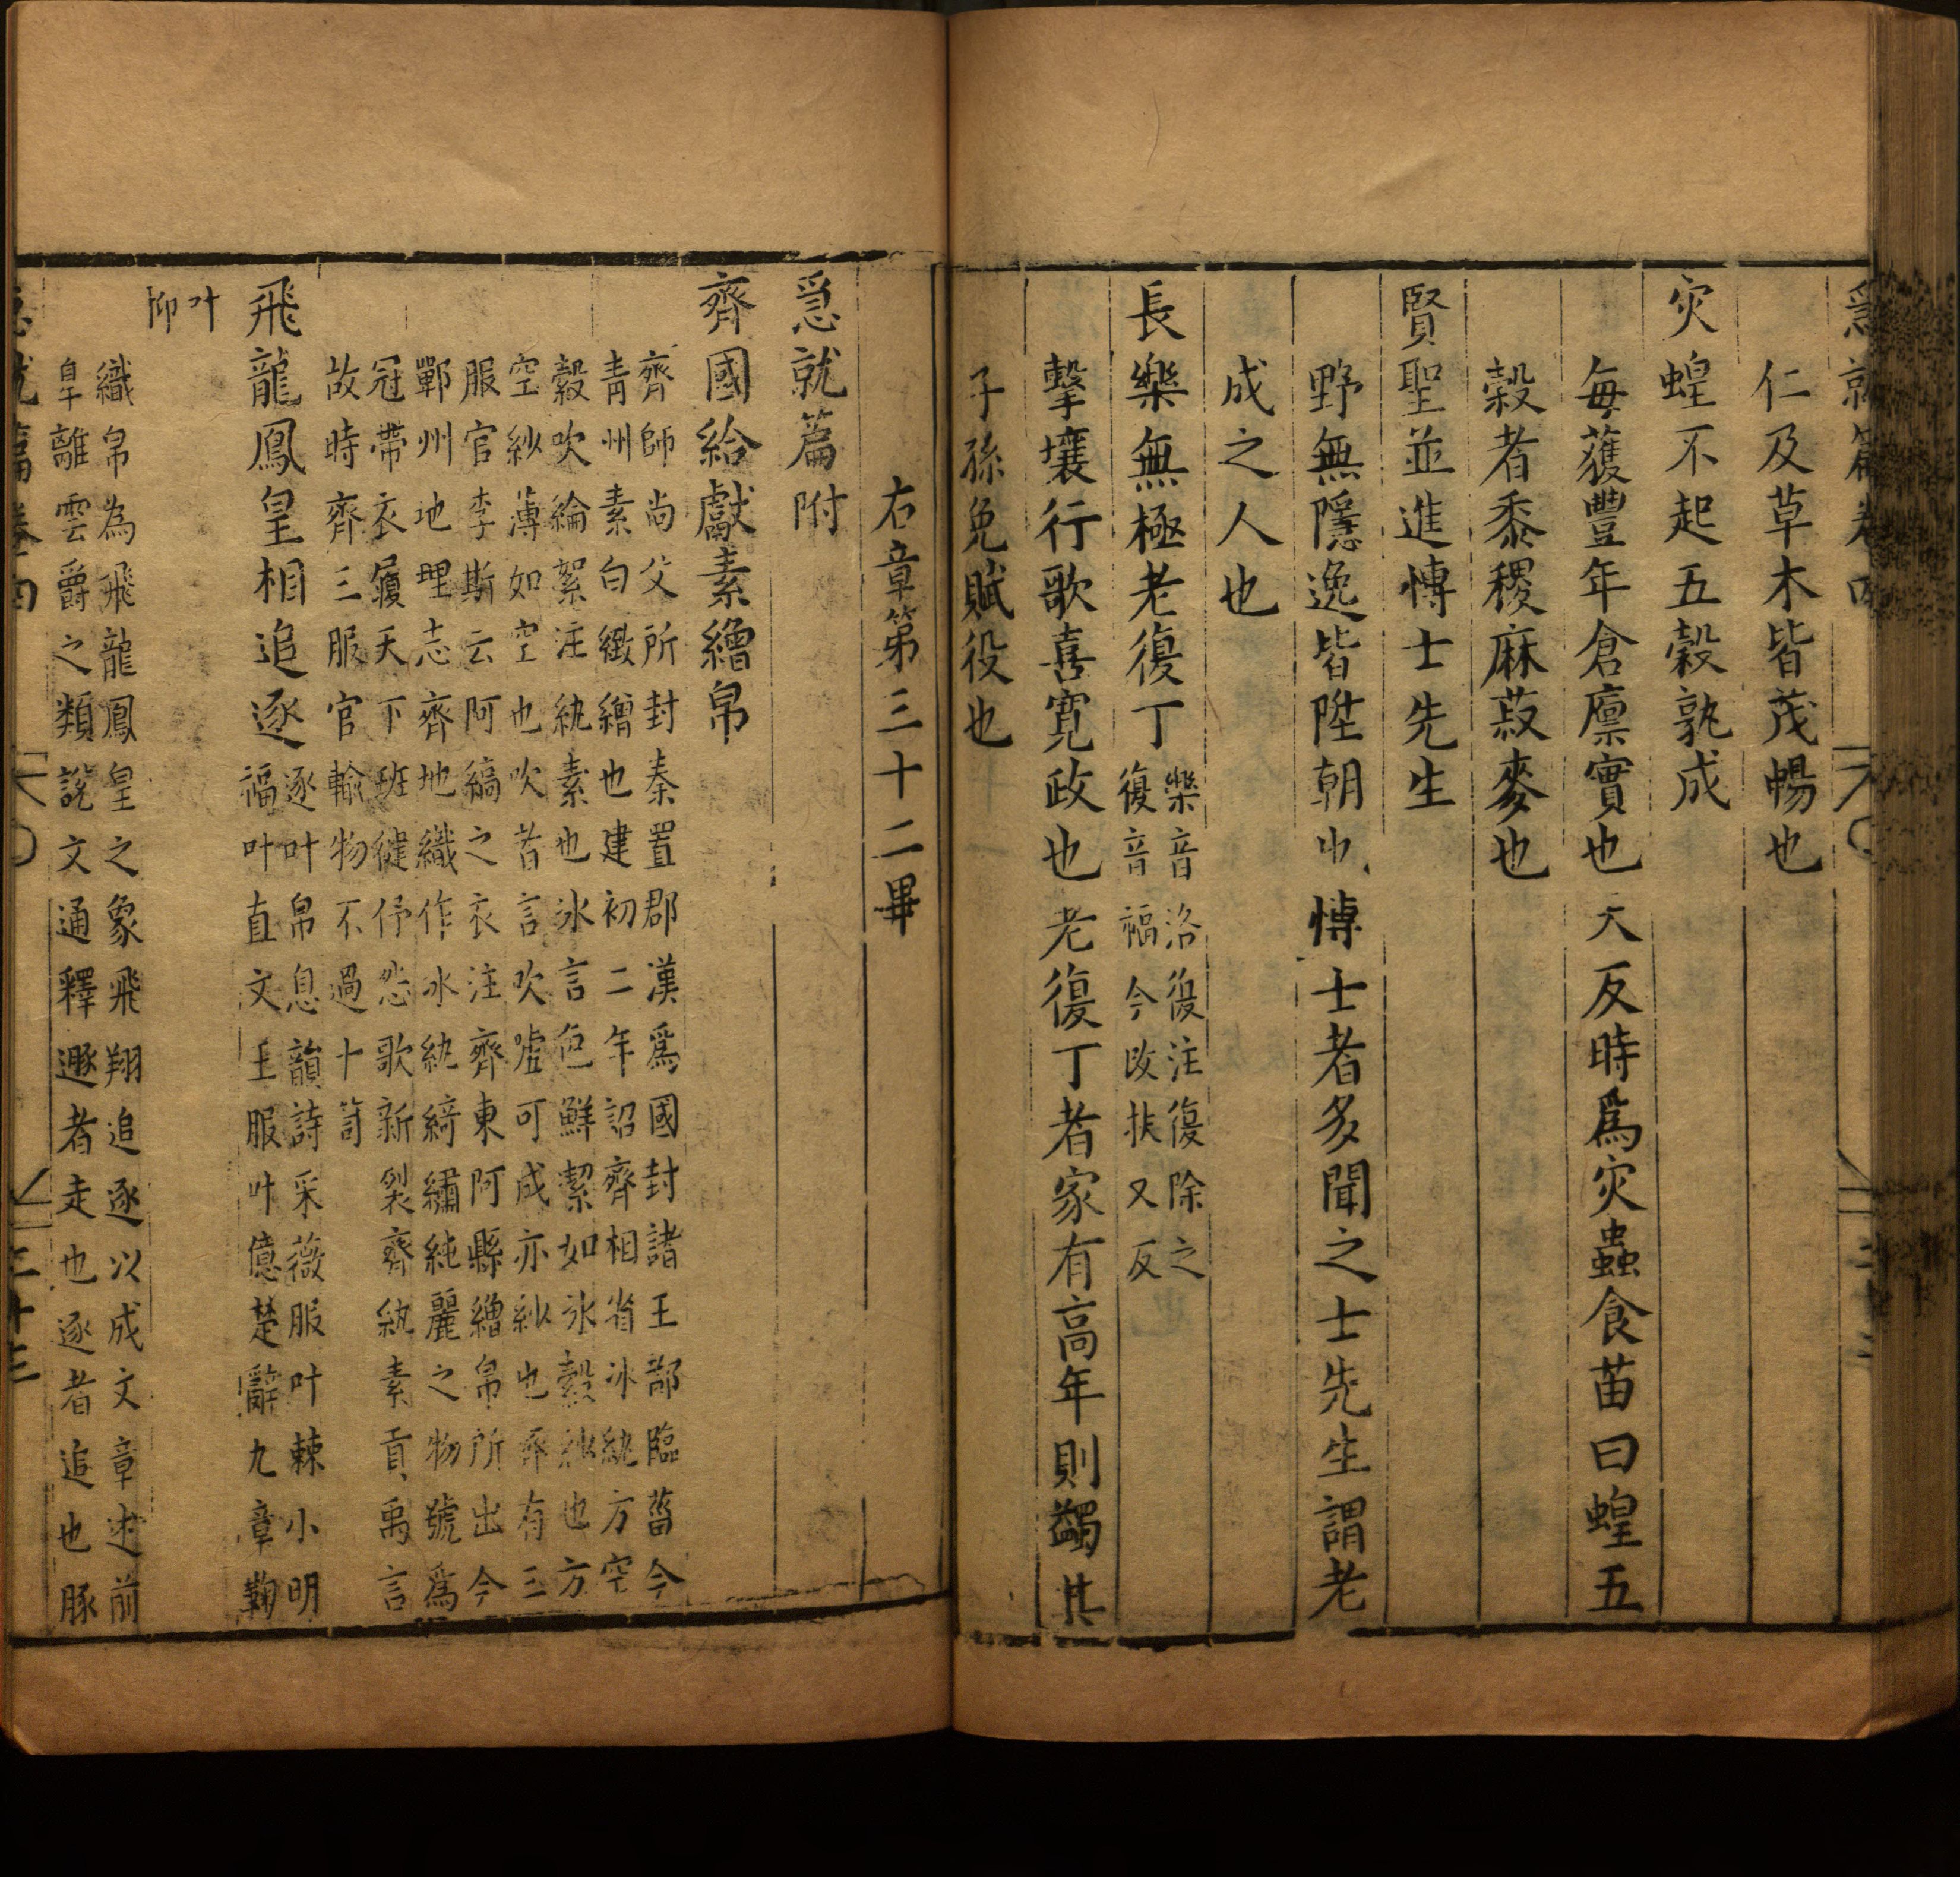 仁及草木皆茂暢也
灾蝗不起五穀孰成
每蒦豐年倉廪實也 天反時爲灾蟲食苗曰蝗五
穀者黍稷麻菽麥也
賢聖並進博士先生
野無隱逸皆陞朝也 博士者多聞之士先生謂老
成之人也
長樂無極老復丁
樂音洛復注復除之
復音福今改扶又反
擊壤行歌喜寛政也 老復丁者家有高年則蠲其
子孫免賦役也
右章第三十二畢
急就篇附
齊國給獻素繒帛
齊師尚父所封秦置郡漢爲國封諸王都臨菑今
青州素白緻繒也建初二年詔齊相省冰紈方空
縠吹綸絮注紈素也冰言色鮮絜如冰縠紗也方
空紗薄如空也吹者言吹嘘可成亦紗也齊有三
服官李斯云阿縞之衣注齊東阿縣繒帛所出今
鄆州地理志齊地織作冰紈綺繡純麗之物號爲
冠帶衣履天下班倢伃怨歌新裂齊紈素貢禹言
故時齊三服官輸物不過十笥
飛龍鳳皇相追逐
逐叶帛息韻詩采薇服叶棘小明
福叶直文王服叶億楚辭九章鞠
叶
抑
織帛為飛龍鳳皇之象飛翔追逐以成文章述前
皐離雲爵之類說文通釋遯者走也逐者追也豚
急就篇卷四
三十三